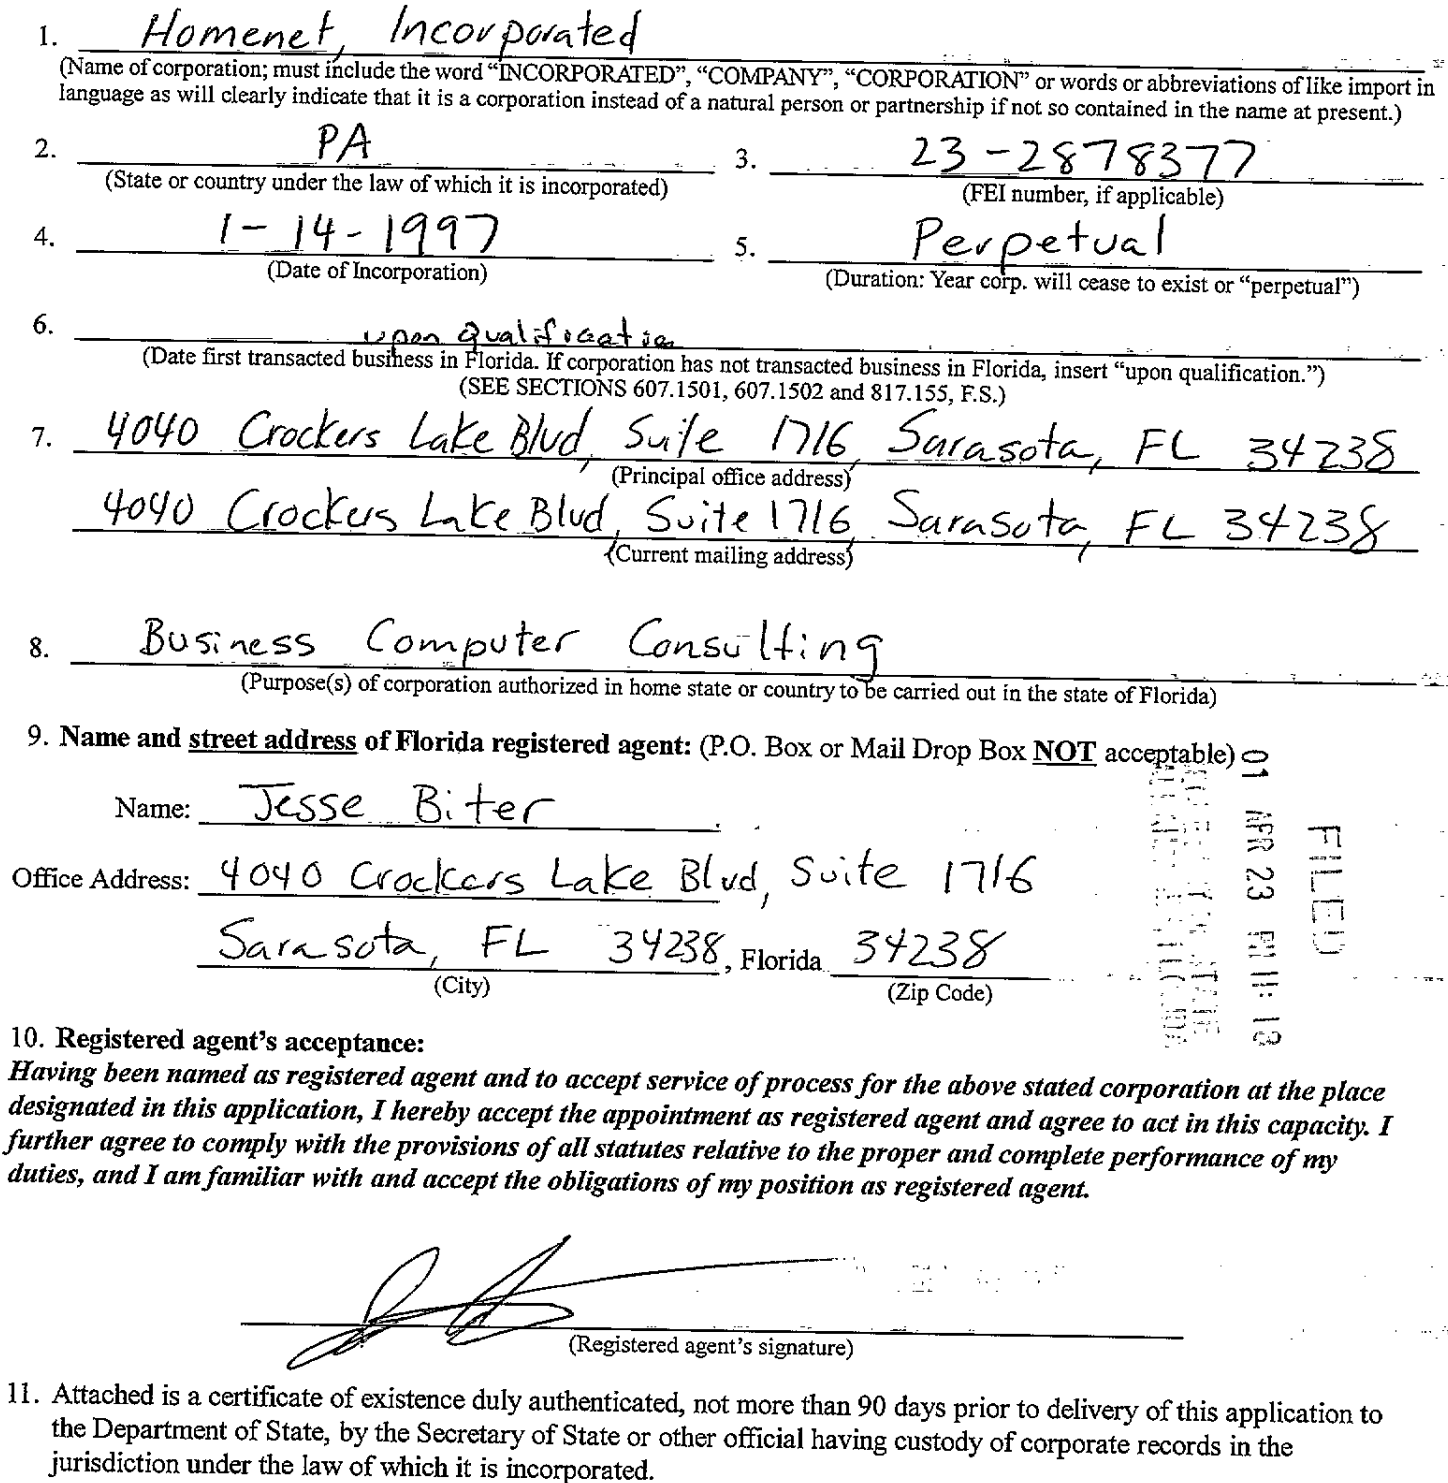 1. Homenet, Incorporated
(Name of corporation; must include the word “INCORPORATED”, “COMPANY”, “CORPORATION” or words or abbreviations of like import in
language as will clearly indicate that it is a corporation instead of a natural person or partnership if not so contained in the name at present.)
2. PA 3. 23-2878377
(State or country under the law of which it is incorporated) (FEI number, if applicable)
4. 1-14-1997 5. Perpetual
(Date of Incorporation) (Duration: Year corp. will cease to exist or “perpetual”)
6. upon qualification
(Date first transacted business in Florida. If corporation has not transacted business in Florida, insert “upon qualification.”)
(SEE SECTIONS 607.1501, 607.1502 and 817.155, F.S.)
7. 4040 Crockers Lake Blvd, Suite 1716, Sarasota, FL 34238
(Principal office address)
4040 Crockers Lake Blvd, Suite 1716, Sarasota, FL 34238
(Current mailing address)
8. Business Computer Consulting
(Purpose(s) of corporation authorized in home state or country to be carried out in the state of Florida)
9. Name and street address of Florida registered agent: (P.O. Box or Mail Drop Box NOT acceptable)
Name: Jesse Biter
Office Address: 4040 Crockers Lake Blvd, Suite 1716
Sarasota, FL 34238, Florida 34238
(City) (Zip Code)
FILED
01 APR 23 11: 13
10. Registered agent’s acceptance:
Having been named as registered agent and to accept service of process for the above stated corporation at the place
designated in this application, I hereby accept the appointment as registered agent and agree to act in this capacity. I
further agree to comply with the provisions of all statutes relative to the proper and complete performance of my
duties, and I am familiar with and accept the obligations of my position as registered agent.
(Registered agent’s signature)
11. Attached is a certificate of existence duly authenticated, not more than 90 days prior to delivery of this application to
the Department of State, by the Secretary of State or other official having custody of corporate records in the
jurisdiction under the law of which it is incorporated.